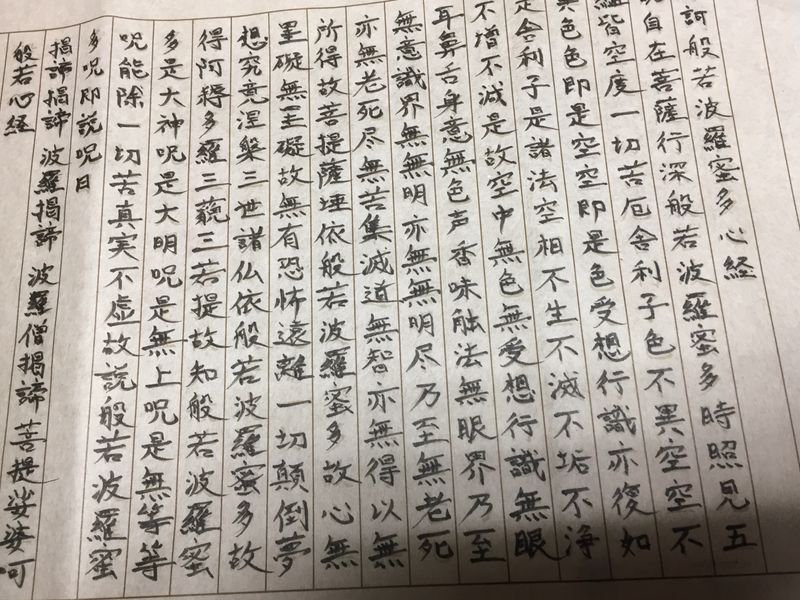 訶般若波羅蜜多心経
自在菩薩行深般若波羅蜜多時照見五
蘊皆空度一切苦厄舎利子色不異空空不
異色色即是空空即是色受想行識亦復如
是舎利子是諸法空相不生不滅不垢不浄
不増不減是故空中無色無受想行識無眼
耳鼻舌身意無色声香味触法無眼界乃至
無意識界無無明亦無無明尽乃至無老死
亦無老死尽無苦集滅道無智亦無得以無
所得故菩提薩埵依般若波羅蜜多故心無
罣礙無罣礙故無有恐怖遠離一切顛倒夢
想究竟涅槃三世諸仏依般若波羅蜜多故
得阿耨多羅三藐三菩提故知般若波羅蜜
多是大神呪是大明呪是無上呪是無等等
呪能除一切苦真実不虚故説般若波羅蜜
多呪即説呪曰
揭諦揭諦 波羅揭諦 波羅僧揭諦 菩提娑婆訶
般若心経